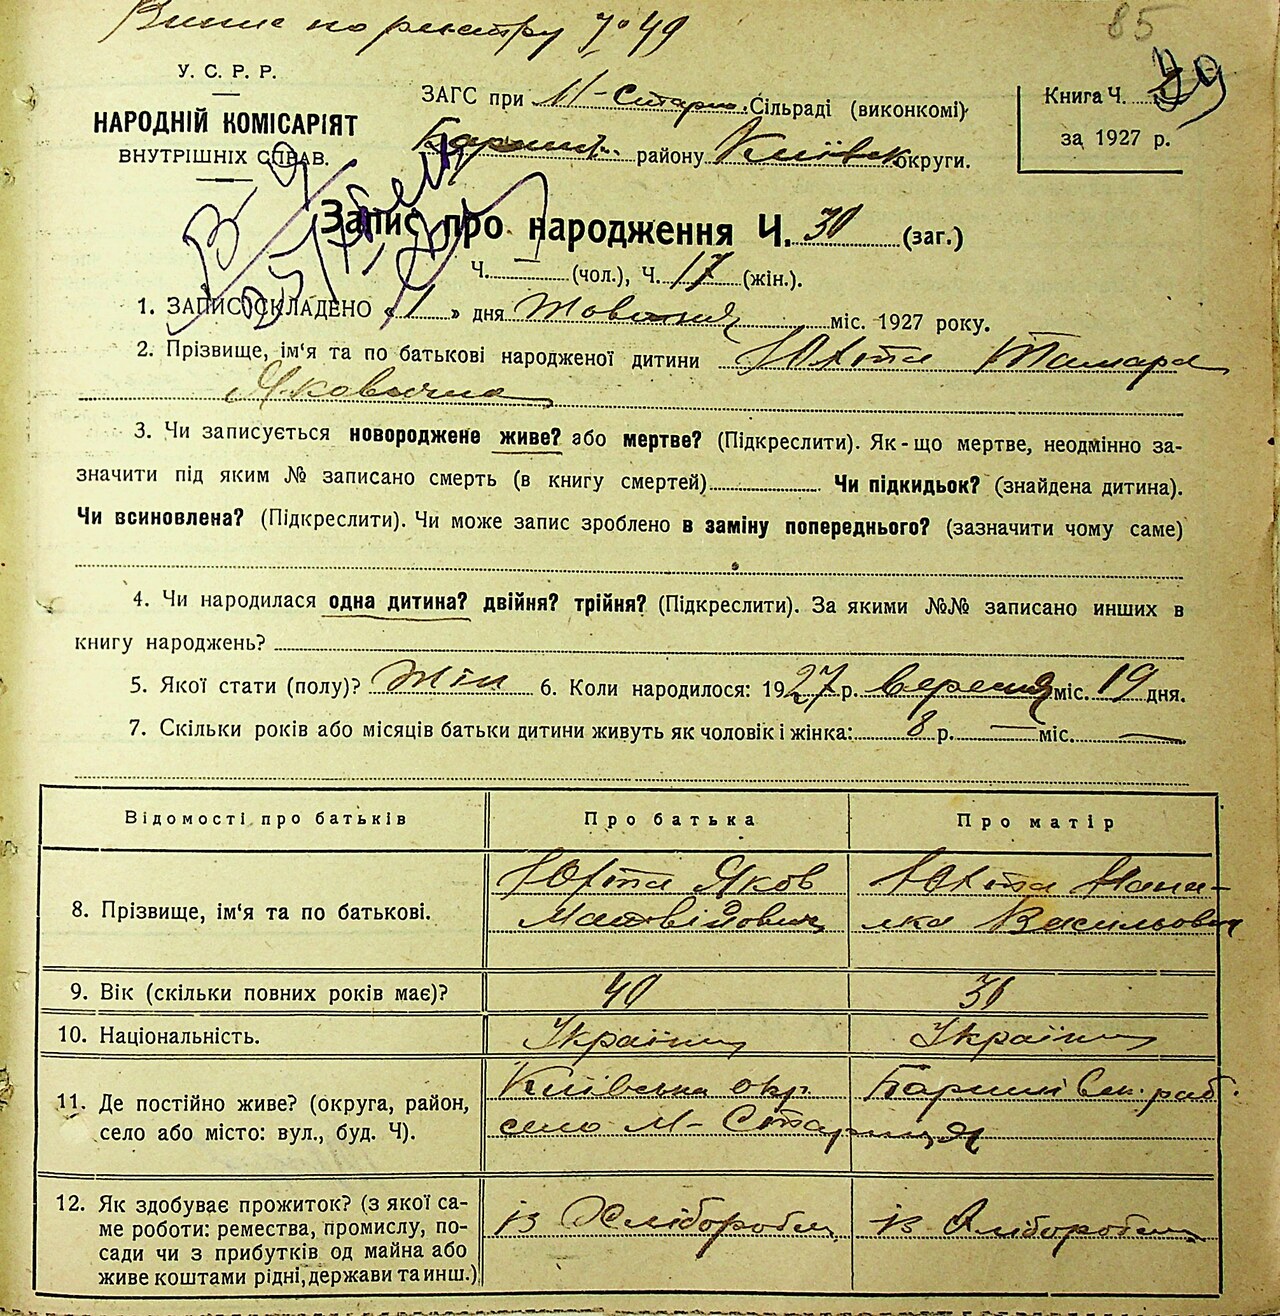 Випис по реєстру № 49
85
У. С. Р. Р.
НАРОДНІЙ КОМІСАРІЯТ
ВНУТРІШНІХ СПРАВ.
ЗАГС при М-Стариц. Сільраді (виконкомі)
Бариш. району Київськ округи.
Книга Ч. 39
за 1927 р.
Запис про народження Ч. 30 (заг.)
Ч. — (чол.), Ч. 17 (жін.).
1. ЗАПИС СКЛАДЕНО « 1 » дня Жовтня міс. 1927 року.
2. Прізвище, ім'я та по батькові народженої дитини Юхта Тамара
Яковична
3. Чи записується новороджене живе? або мертве? (Підкреслити). Як-що мертве, неодмінно за-
значити під яким № записано смерть (в книгу смертей) Чи підкидьок? (знайдена дитина).
Чи всиновлена? (Підкреслити). Чи може запис зроблено в заміну попереднього? (зазначити чому саме)
4. Чи народилася одна дитина? двійня? трійня? (Підкреслити). За якими №№ записано инших в
книгу народжень?
5. Якої стати (полу)? Жін 6. Коли народилося: 1927 р. вересня міс. 19 дня.
7. Скільки років або місяців батьки дитини живуть як чоловік і жінка: 8 р. — міс. —
Відомості про батьків Про батька Про матір
8. Прізвище, ім'я та по батькові. Юхта Яков Матвійович Юхта Васильовн
9. Вік (скільки повних років має)? 40 30
10. Національність. Українц Українц
11. Де постійно живе? (округа, район, Київська окр. Баришівськ. рай.
село або місто: вул., буд. Ч). село М-Стариця
12. Як здобуває прожиток? (з якої са- із Хліборобец із Хліборобец
ме роботи: ремества, промислу, по-
сади чи з прибутків од майна або
живе коштами рідні, держави та инш.)